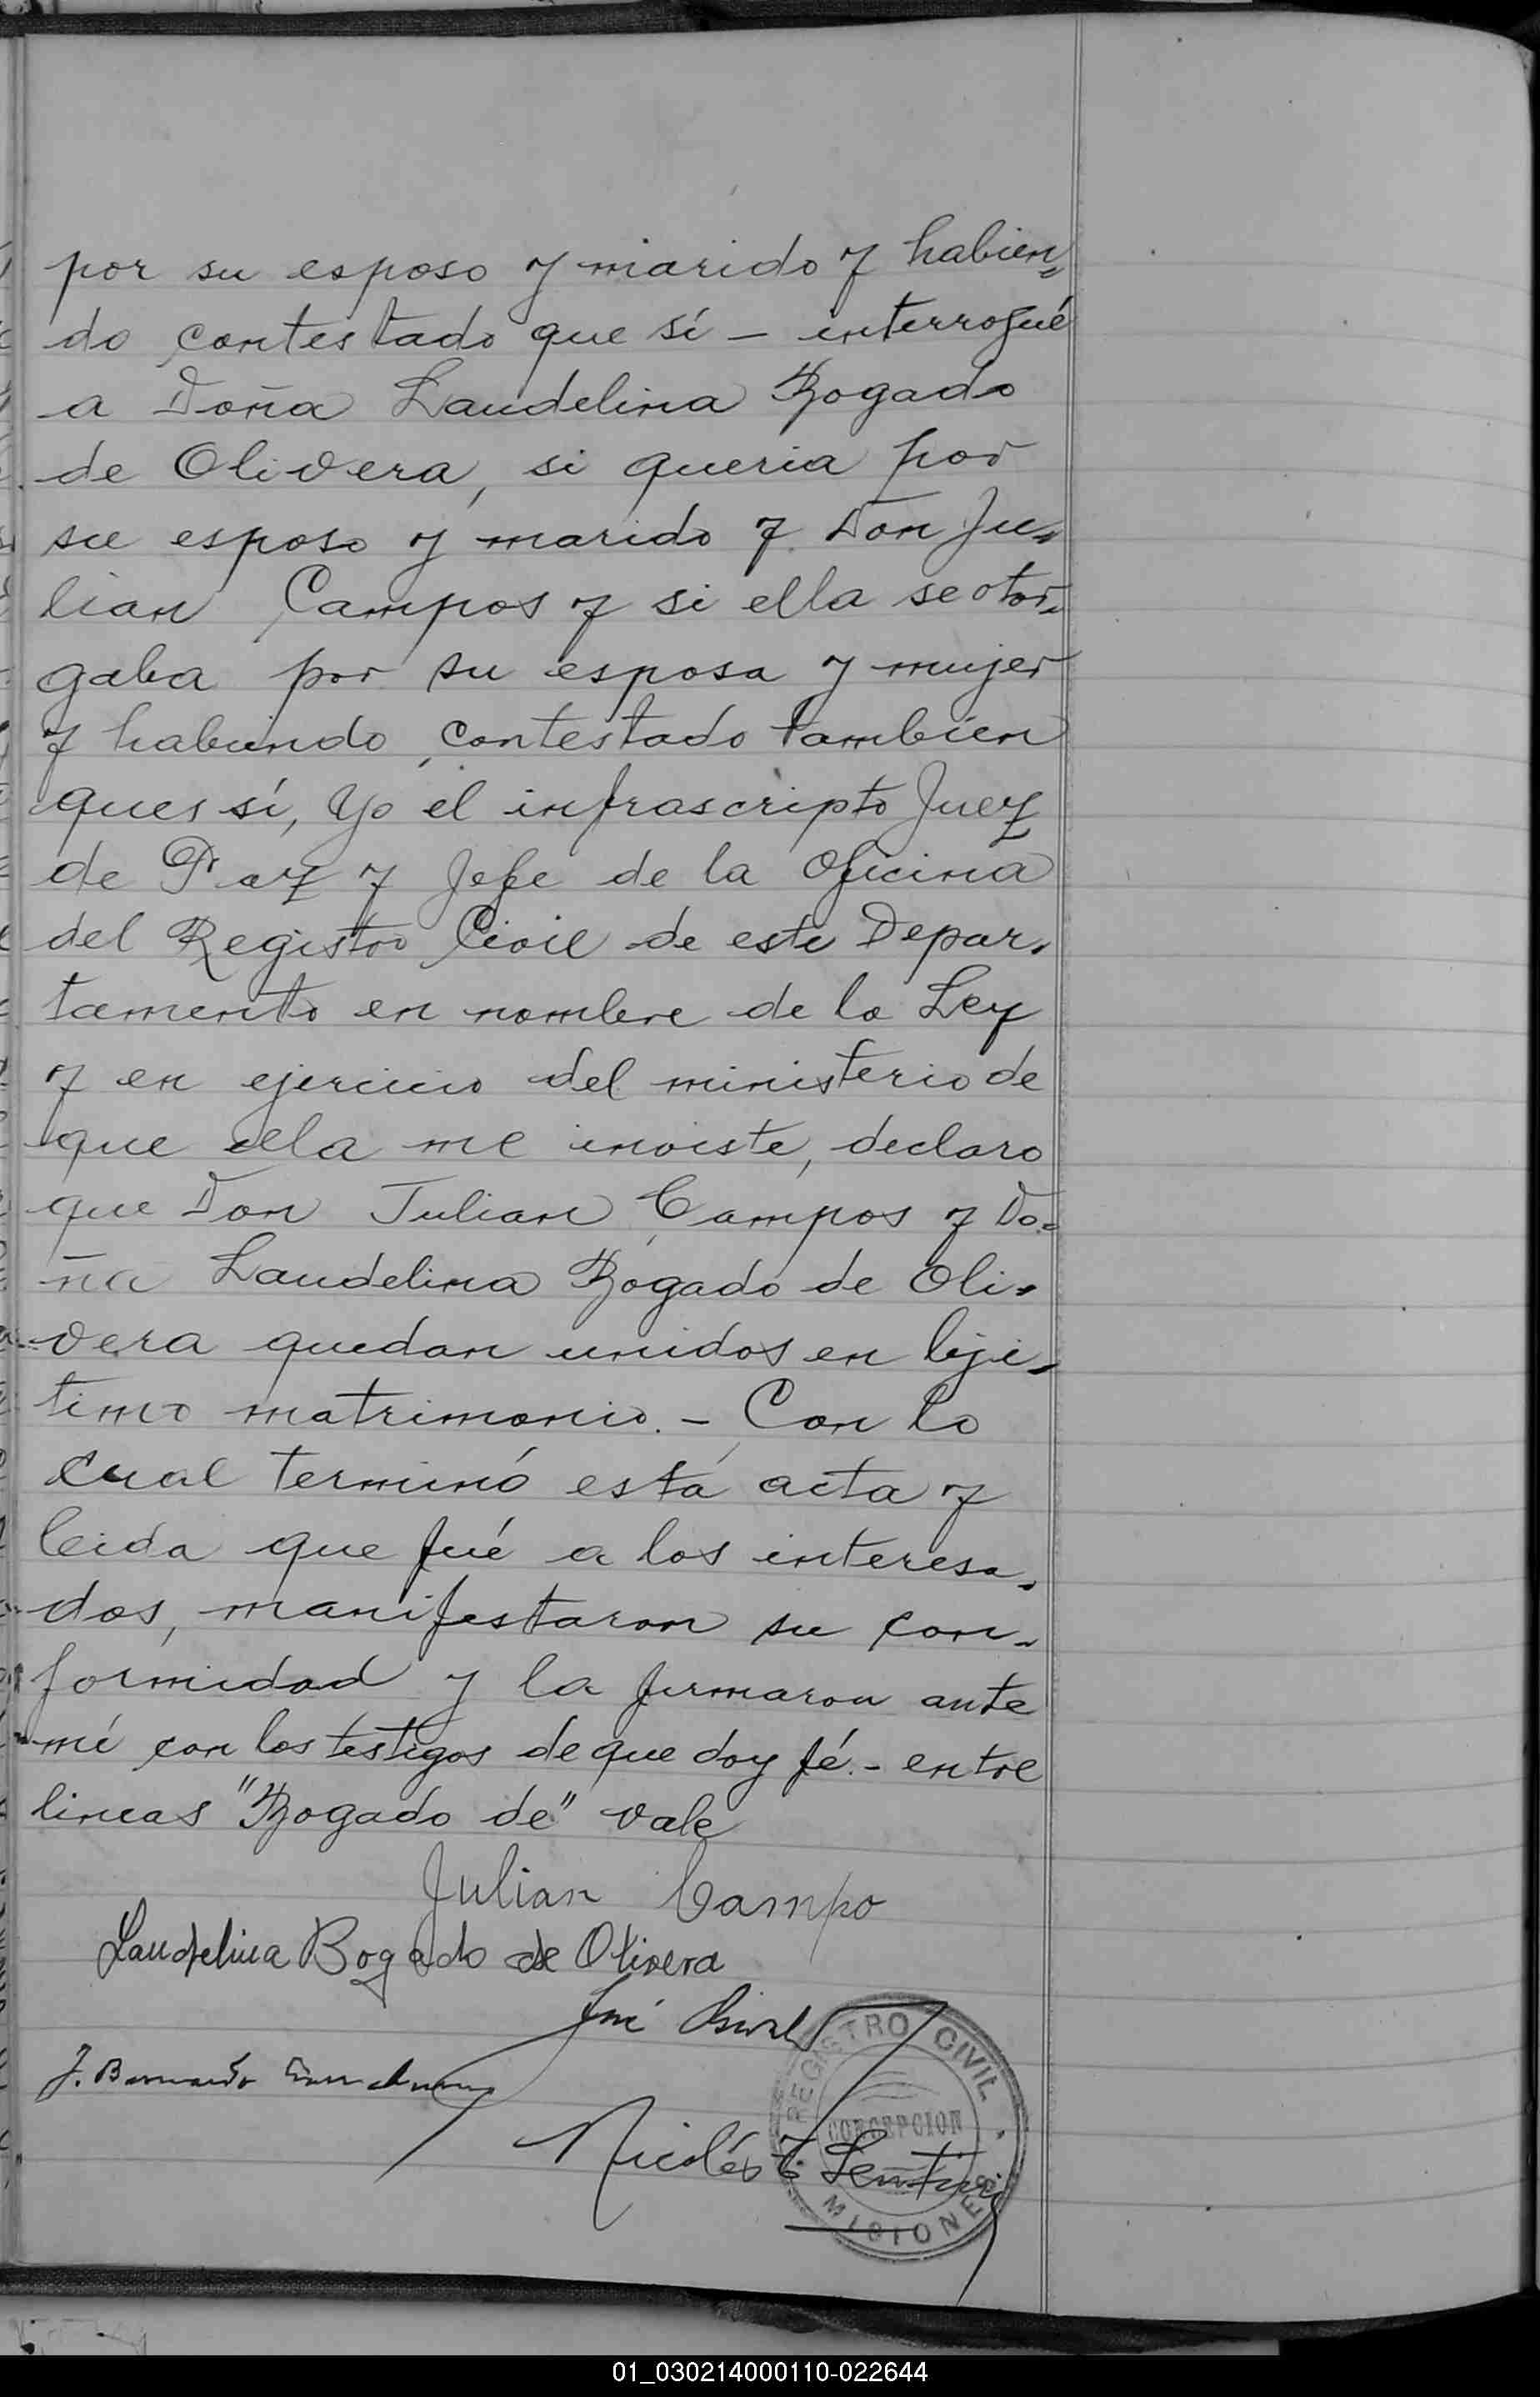 por su esposo y marido y habien=
do contestado que sí - interrogué
a Doña Laudelina Bogado
de Olivera, si queria por
su esposo y marido y Don Ju=
lian Campos y si ella se otor=
gaba por su esposa y mujer
y habiendo contestado tambien
ques sí, Yo el infrascripto Juez
de Paz y Jefe de la Oficina
del Registro Civil de este Depar=
tamento en nombre de la Ley
y en ejercicio del ministerio de
que ella me inviste, declaro
que Don Julian Campos y Do=
ña Laudelina Bogado de Oli=
vera quedan unidos en liji=
timo matrimonio. - Con lo
cual terminó está acta y
leida que fué a los interesa=
dos, manifestaron su con=
formidad y la firmaron ante
mí con los testigos de que doy fé. - entre
lineas "Bogado de" vale
Julian Campo
Laudelina Bogado de Olivera
José
J. Bernardo
REGISTRO CIVIL
CONCEPCION
Nicolás
MISIONES
01_030214000110-022644